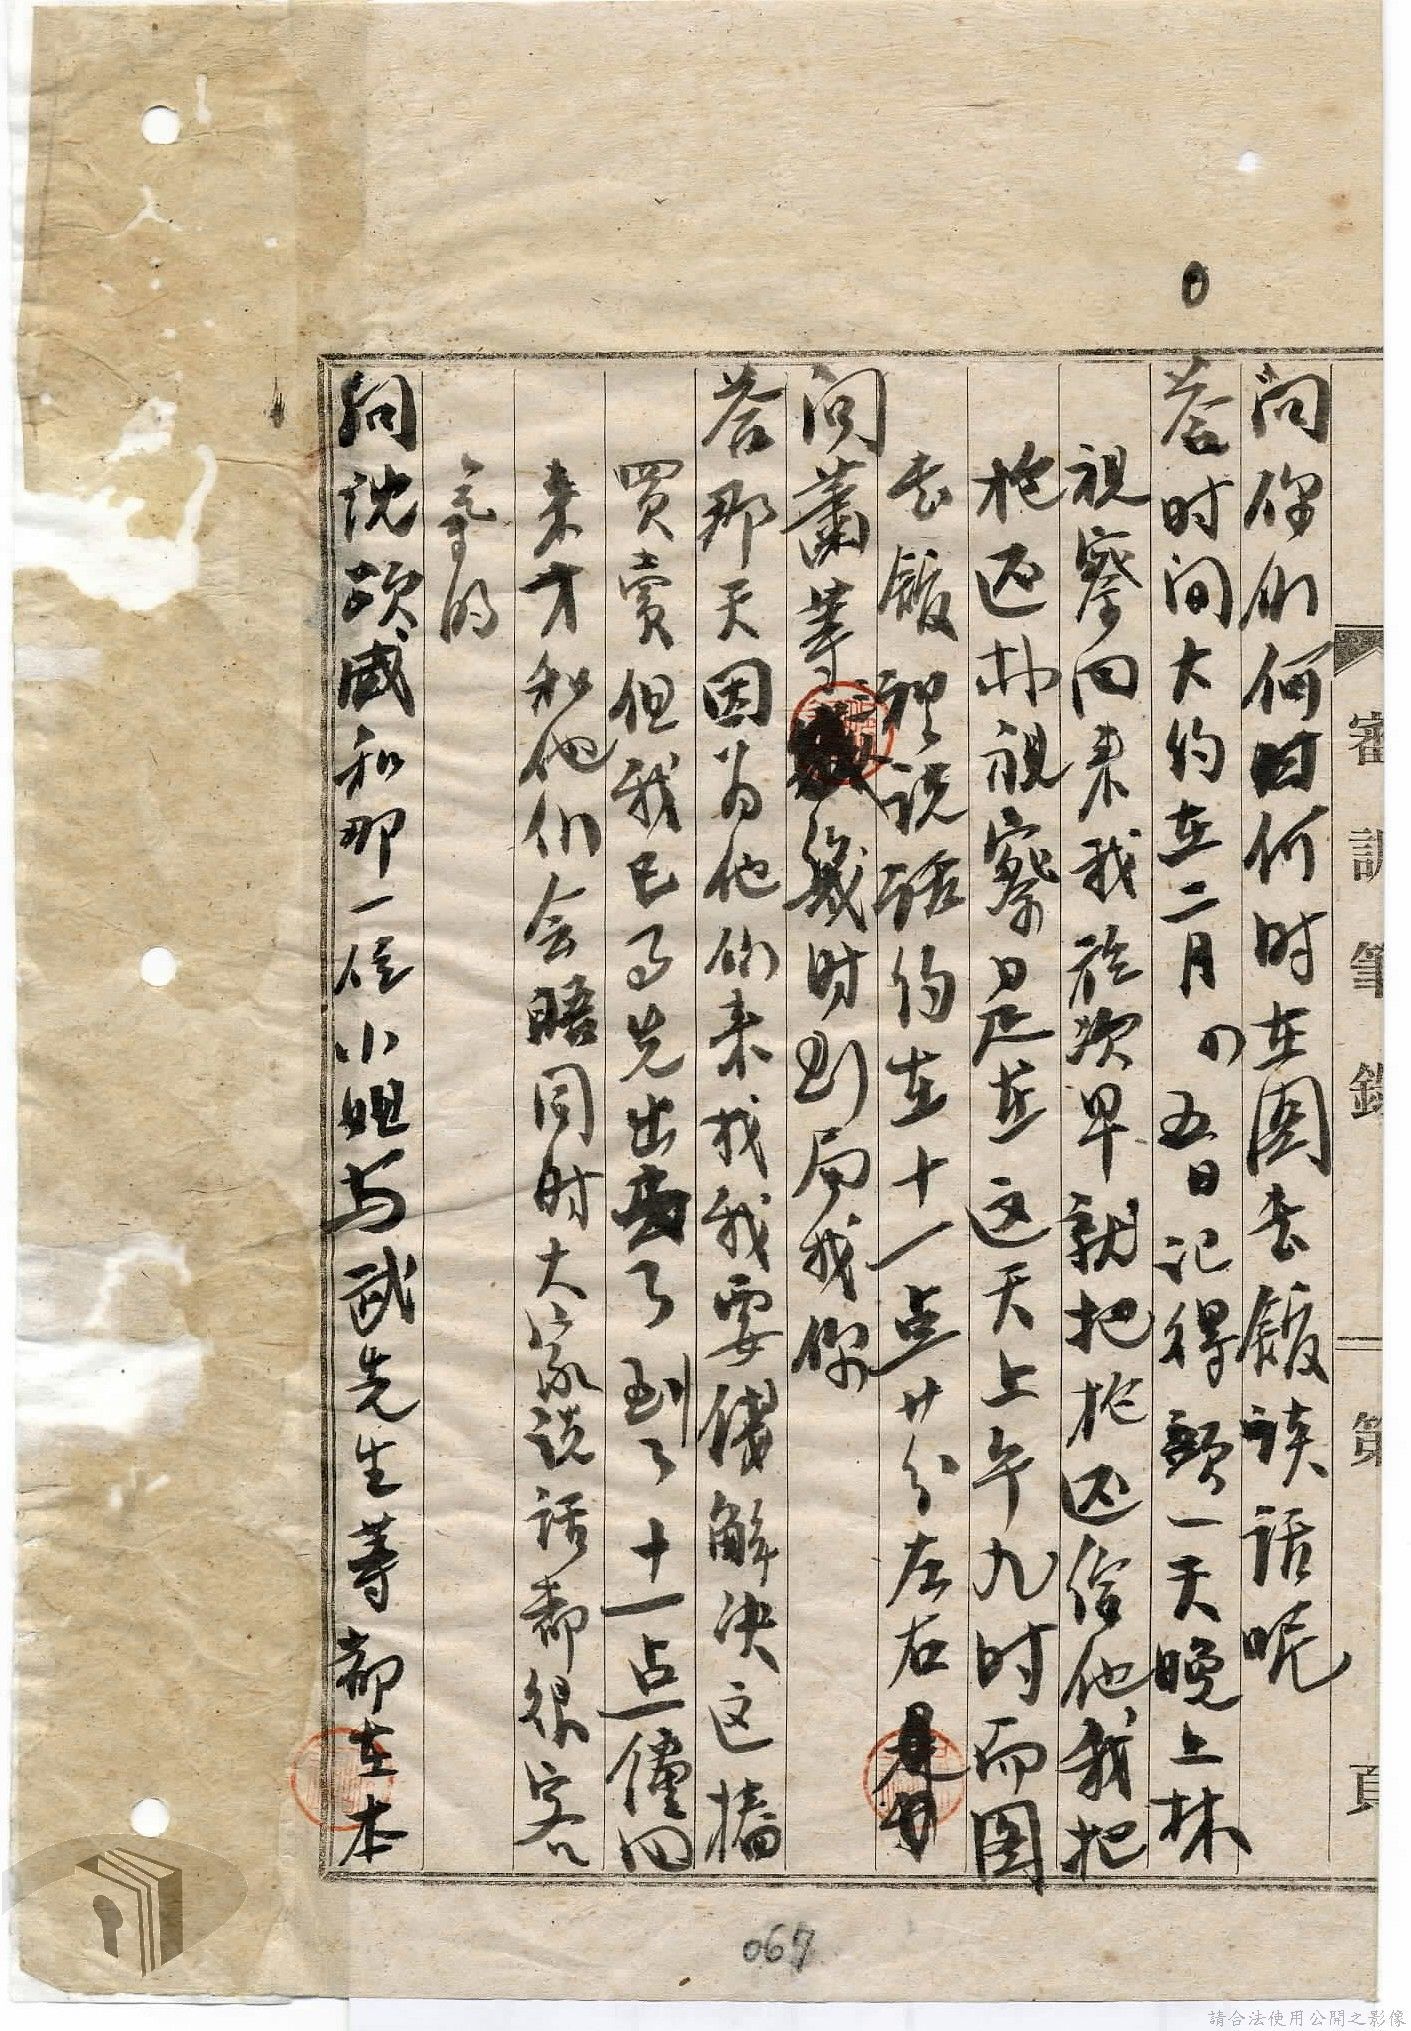 審訊筆錄 第 頁
问你们何时何时在圖書館谈话呢
荅时间大约在二月 四五日记得頭一天晚上林
視察回来我於次早就把枪还给他我把
枪还林視察是在这天上午九时而圖
書館裡说话约在十一点廿分左右
问蕭等幾时到局找你
荅那天因为他们来找我要俴解决这樁
買賣但我已了先出去了到了十一点僅回
来才和他们会晤同时大家说话都很客
氣的
問沈頌威和那一位小姐与武先生等都在本
067
請合法使用公開之影像